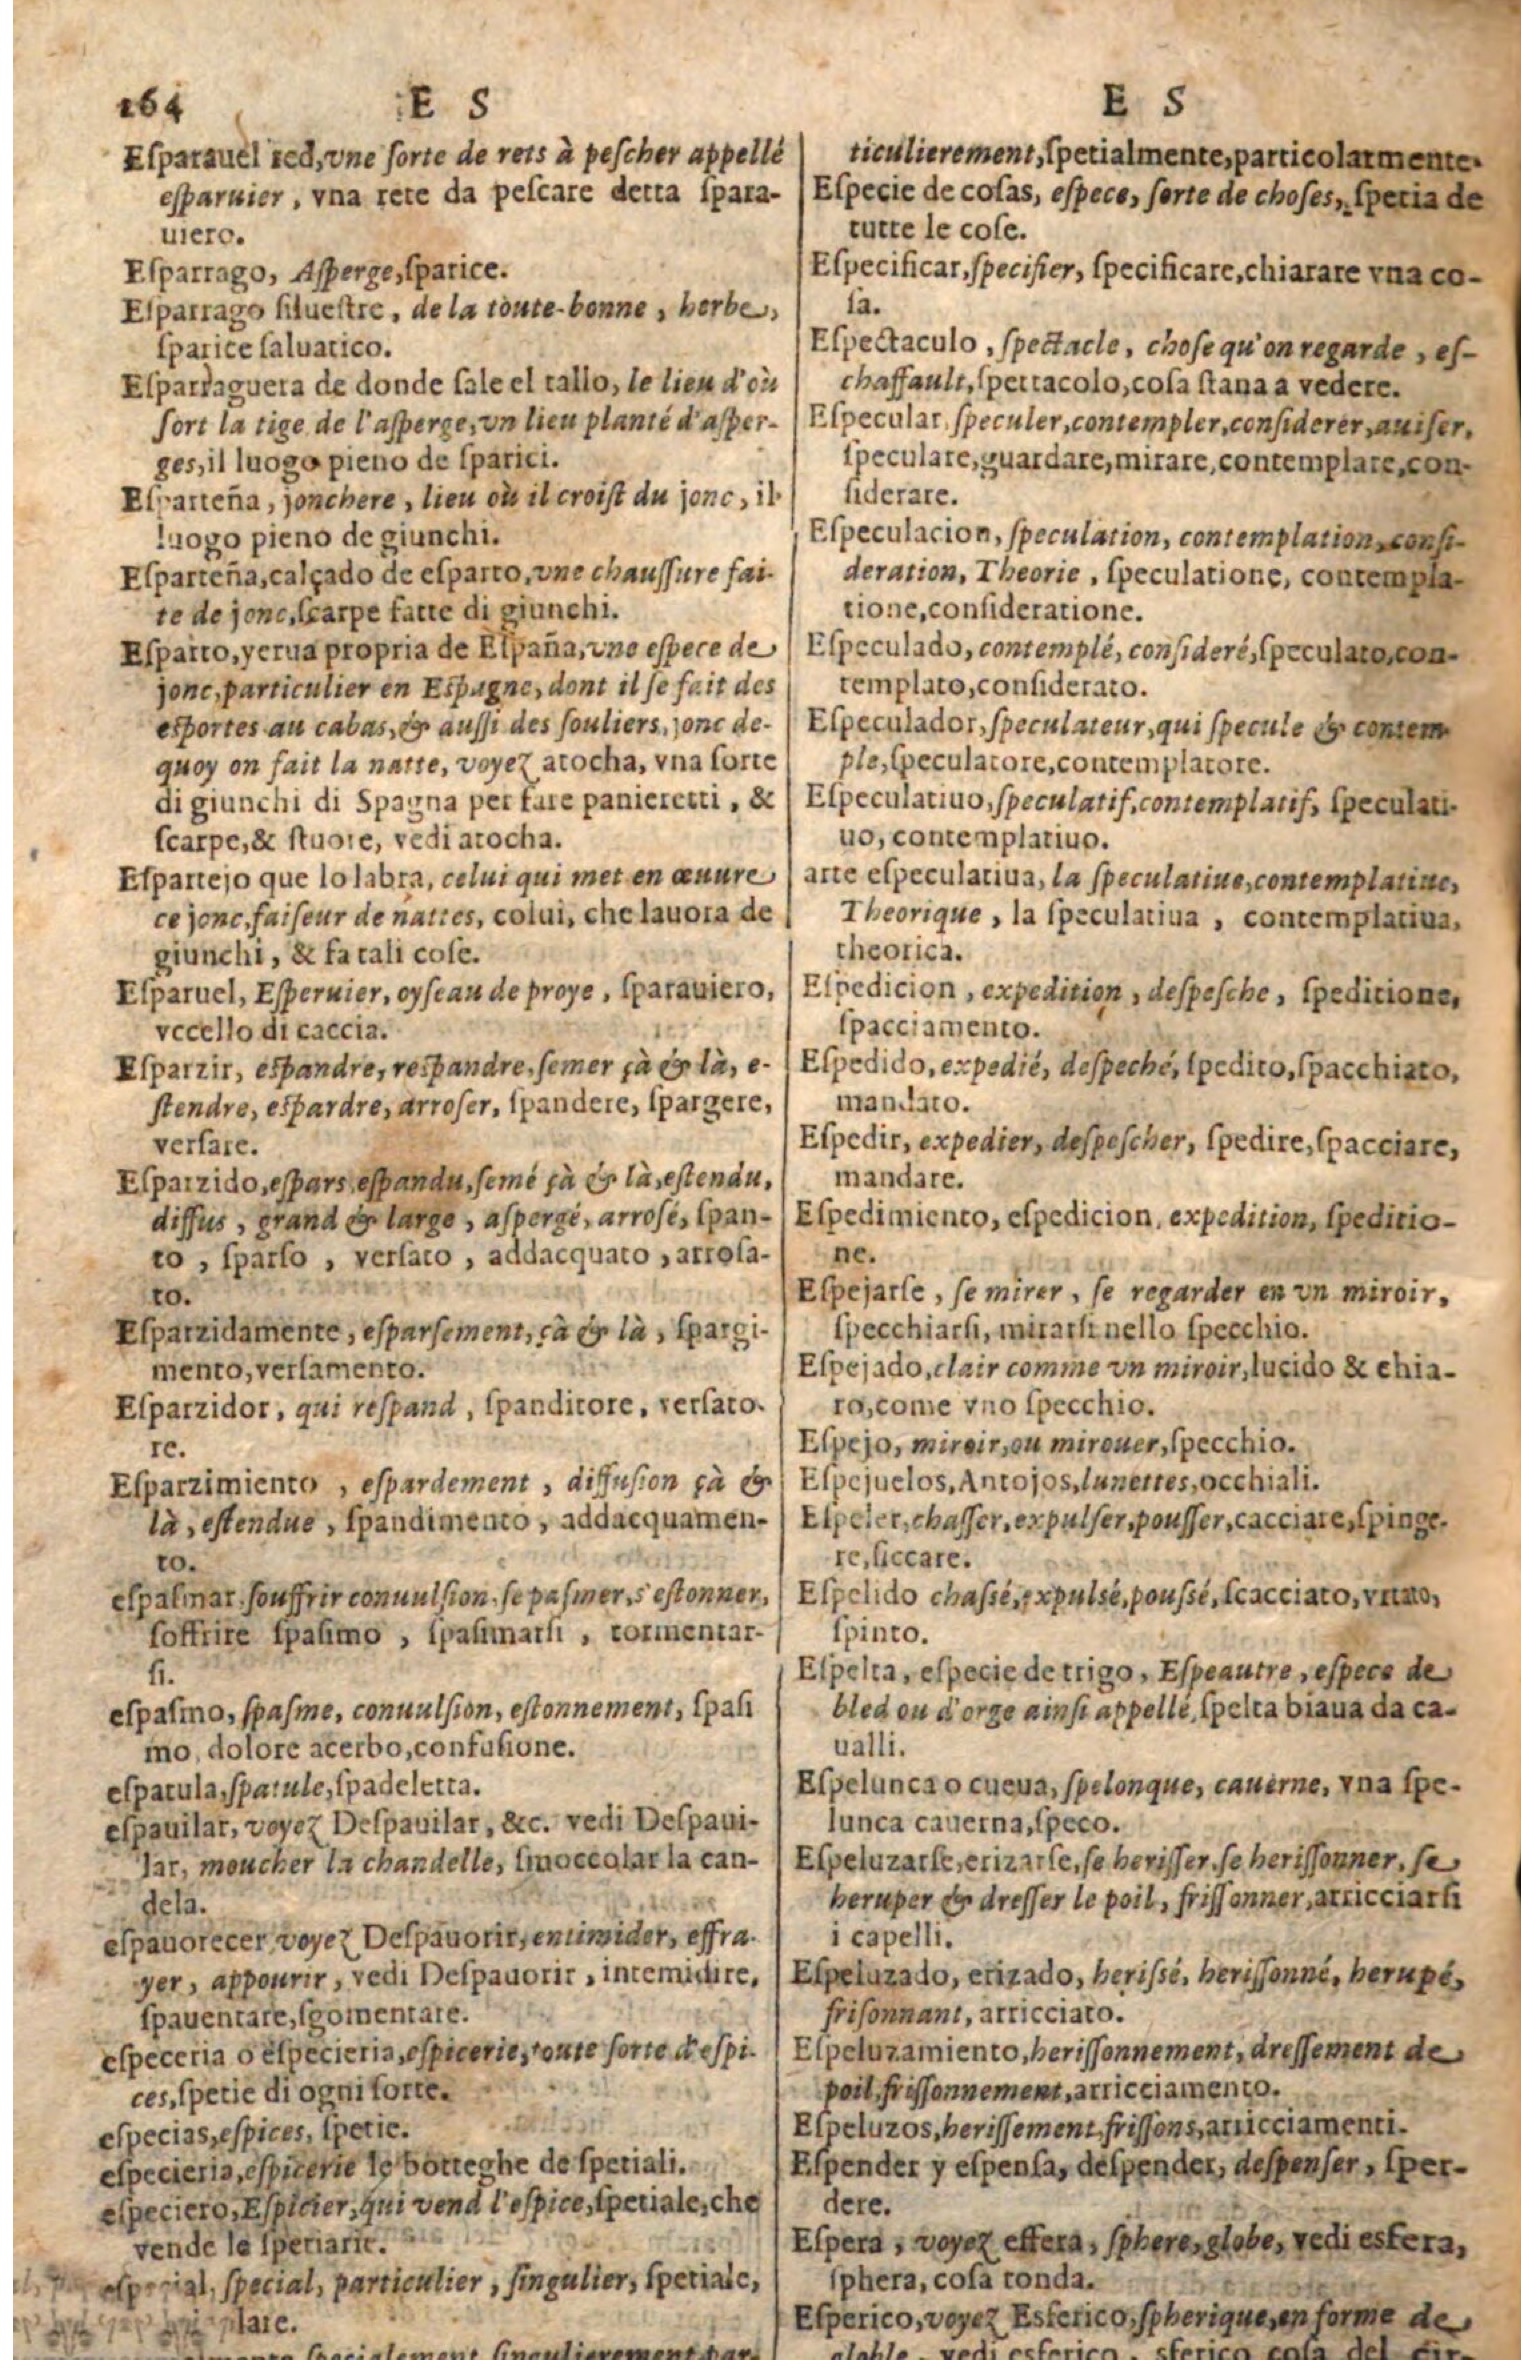 164 E S
Eſparauel red, vne ſorte de rets à peſcher appellé
eſparuier, vna rete da peſcare detta ſpara-
uiero.
Eſparrago, Aſperge, ſparice.
Eſparrago ſilueſtre, de la toute-bonne, herbe,
ſparice ſaluatico.
Eſparraguera de donde ſale el tallo, le lieu d'où
ſort la tige de l'aſperge, vn lieu planté d'aſper-
ges, il luogo pieno de ſparici.
Eſparteña, jonchere, lieu où il croiſt du jonc, il
luogo pieno de giunchi.
Eſparteña, calçado de eſparto, vne chauſſure fai-
te de jonc, ſcarpe fatte di giunchi.
Eſparto, yerua propria de Eſpaña, vne eſpece de
jonc, particulier en Eſpagne, dont il ſe fait des
eſportes au cabas, & auſſi des ſouliers, jonc de-
quoy on fait la natte, voyez atocha, vna ſorte
di giunchi di Spagna per fare panieretti, &
ſcarpe, & ſtuore, vedi atocha.
Eſpartejo que lo labra, celui qui met en œuure
ce jonc, faiſeur de nattes, colui, che lauora de
giunchi, & fa tali coſe.
Eſparuel, Eſperuier, oyſeau de proye, ſparauiero,
vccello di caccia.
Eſparzir, eſpandre, reſpandre, ſemer çà & là, e-
ſtendre, eſpardre, arroſer, ſpandere, ſpargere,
verſare.
Eſparzido, eſpars, eſpandu, ſemé çà & là, eſtendu,
diffus, grand & large, aſpergé, arroſé, ſpan-
to, ſparſo, verſato, addacquato, arroſa-
to.
Eſparzidamente, eſparſement, çà & là, ſpargi-
mento, verſamento.
Eſparzidor, qui reſpand, ſpanditore, verſato-
re.
Eſparzimiento, eſpardement, diffuſion çà &
là, eſtendue, ſpandimento, addacquamen-
to.
eſpaſmar, ſouffrir conuulſion, ſe paſmer, s'eſtonner,
ſoffrire ſpaſimo, ſpaſimarſi, tormentar-
ſi.
eſpaſmo, ſpaſme, conuulſion, eſtonnement, ſpaſi
mo, dolore acerbo, confuſione.
eſpatula, ſpatule, ſpadeletta.
eſpauilar, voyez Deſpauilar, &c. vedi Deſpaui-
lar, moucher la chandelle, ſmoccolar la can-
dela.
eſpauorecer, voyez Deſpauorir, entimider, effra-
yer, appourir, vedi Deſpauorir, intemidire,
ſpauentare, ſgomentare.
eſpeceria o eſpecieria, eſpicerie, toute ſorte d'eſpi-
ces, ſpetie di ogni ſorte.
eſpecias, eſpices, ſpetie.
eſpecieria, eſpicerie le botteghe de ſpetiali.
eſpeciero, Eſpicier, qui vend l'eſpice, ſpetiale, che
vende le ſpetiarie.
special, particulier, ſingulier, ſpetiale,
lare.
ſpecialement ſingulierement par-
E S
ticulierement, ſpetialmente, particolarmente.
Eſpecie de coſas, eſpece, ſorte de choſes, ſpetia de
tutte le coſe.
Eſpecificar, ſpecifier, ſpecificare, chiarare vna co-
ſa.
Eſpectaculo, ſpectacle, choſe qu'on regarde, eſ-
chaffault, ſpettacolo, coſa ſtana a vedere.
Eſpecular, ſpeculer, contempler, conſiderer, auiſer,
ſpeculare, guardare, mirare, contemplare, con-
ſiderare.
Eſpeculacion, ſpeculation, contemplation, conſi-
deration, Theorie, ſpeculatione, contempla-
tione, conſideratione.
Eſpeculado, contemplé, conſideré, ſpeculato, con-
templato, conſiderato.
Eſpeculador, ſpeculateur, qui ſpecule & contem-
ple, ſpeculatore, contemplatore.
Eſpeculatiuo, ſpeculatif, contemplatif, ſpeculati-
uo, contemplatiuo.
arte eſpeculatiua, la ſpeculatiue, contemplatiue,
Theorique, la ſpeculatiua, contemplatiua,
theorica.
Eſpedicion, expedition, deſpeſche, ſpeditione,
ſpacciamento.
Eſpedido, expedié, deſpeché, ſpedito, ſpacchiato,
mandato.
Eſpedir, expedier, deſpeſcher, ſpedire, ſpacciare,
mandare.
Eſpedimiento, eſpedicion, expedition, ſpeditio-
ne.
Eſpejarſe, ſe mirer, ſe regarder en vn miroir,
ſpecchiarſi, mirarſi nello ſpecchio.
Eſpejado, clair comme vn miroir, lucido & chia-
ro, come vno ſpecchio.
Eſpejo, miroir, ou mirouer, ſpecchio.
Eſpejuelos, Antojos, lunettes, occhiali.
Eſpeler, chaſſer, expulſer, pouſſer, cacciare, ſpinge-
re, ſiccare.
Eſpelido chaſſé, expulſé, pouſſé, ſcacciato, vrtato,
ſpinto.
Eſpelta, eſpecie de trigo, Eſpeautre, eſpece de
bled ou d'orge ainſi appellé, ſpelta biaua da ca-
ualli.
Eſpelunca o cueua, ſpelonque, cauerne, vna ſpe-
lunca cauerna, ſpeco.
Eſpeluzarſe, erizarſe, ſe heriſſer, ſe heriſſonner, ſe
heruper & dreſſer le poil, friſſonner, arricciarſi
i capelli.
Eſpeluzado, erizado, heriſſé, heriſſonné, herupé,
friſonnant, arricciato.
Eſpeluzamiento, heriſſonnement, dreſſement de
poil, friſſonnement, arricciamento.
Eſpeluzos, heriſſement, friſſons, arricciamenti.
Eſpender y eſpenſa, deſpender, deſpenſer, ſper-
dere.
Eſpera, voyez eſfera, ſphere, globe, vedi esfera,
ſphera, coſa tonda.
Eſperico, voyez Esferico, ſpherique, en forme de
globle, vedi esferico, sferico coſa del cir-